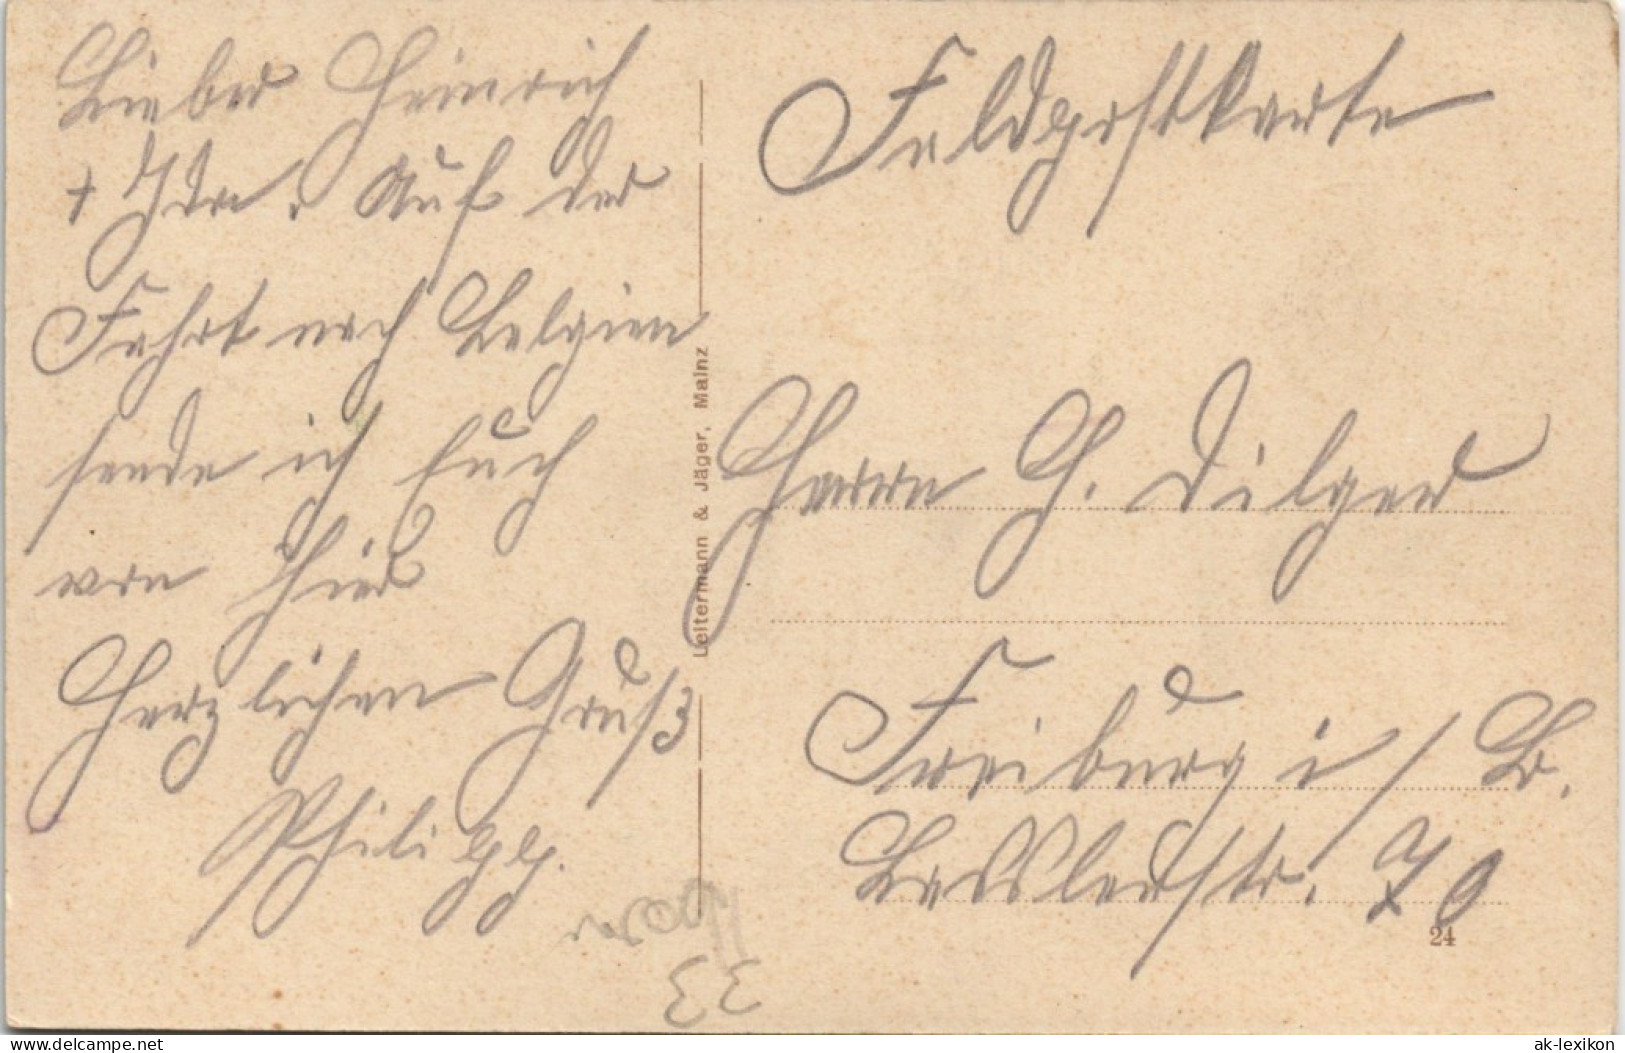 Lieber Heinrich
+ Ida. Auf der
Fahrt nach Belgien
sende ich Euch
von hier
Herzlichen Gruß
Philipp.
Feldpostkarte
Herrn H. Dilger
Freiburg i/B.
Lesslerstr. 20
Leitermann & Jäger, Mainz
24
33
www.delcampe.net
ak-lexikon